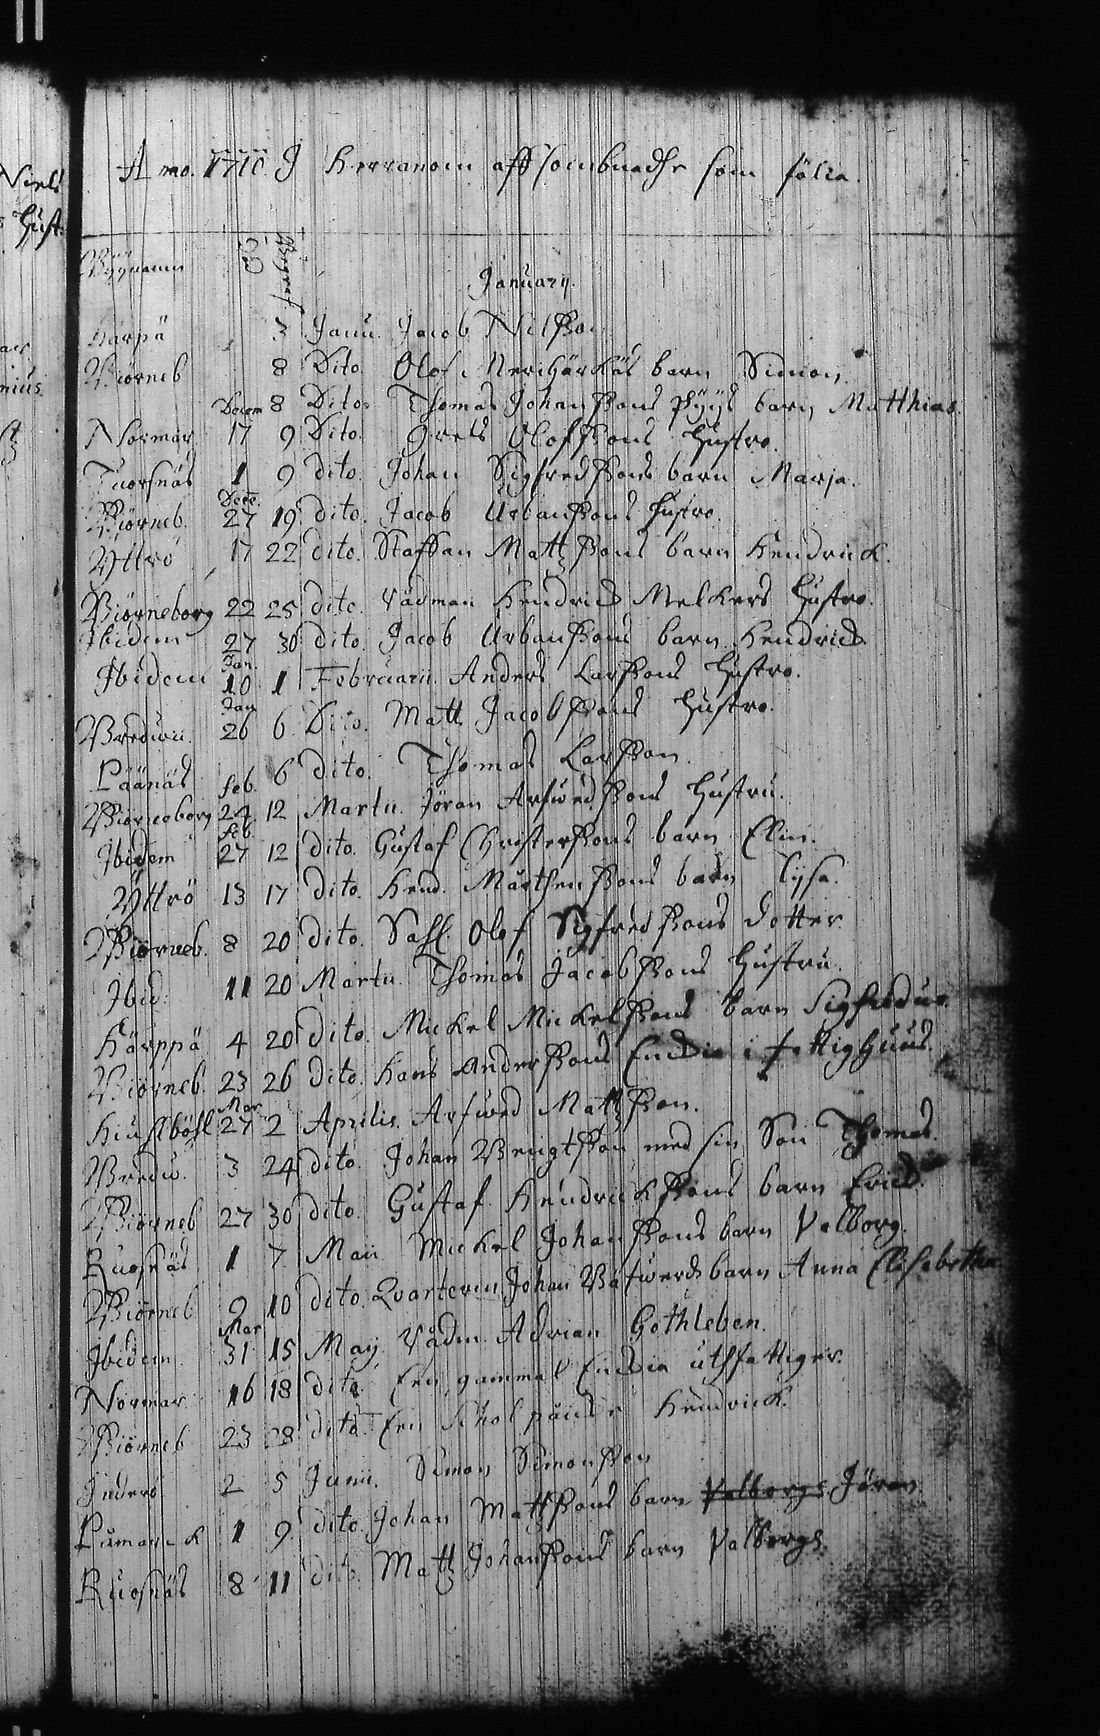 Niels
Hust:
nius
A:mo. 1710. I Herranom affsombnadhe som fölia.
Bÿÿnamn Död Begraf
January.
Härpä 3 Janu. Jacob Nilsson
Biörneb 8 Dito. Olof barn Simon
Decem 8 Dito. Thomas Johanssons barn Matthias.
Normar 17 9 Dito. Grels Olofssons Hustro.
Tuorsnäs 1 9 dito. Johan Sigfredssons barn Marja.
Dece.
Biörneb. 27 19 dito. Jacob Urbanssons Hustro.
Yttrö 17 22 dito. Staffan Mattssons barn Hendrick.
Biörneborg 22 25 dito. Rådman Hendrich Melkers Hustro.
Ibidem 27 30 dito. Jacob Urbanssons barn Hendrich
Jan.
Ibidem 10 1 Februarii. Anders Larssons Hustro.
Jan
Bredwii. 26 6 Dito. Matt Jacobssons Hustro.
Päänäs 6 dito. Thomas Larsson.
feb.
Biörneborg 24 12 Martii. Jöran Arfwedssons Hustru.
feb.
Ibidem 27 12 dito. Gustaf Christerssons barn Elin.
Yttrö 13 17 dito. Hend. Mårthenssons barn Lysa.
Biörneb. 8 20 dito. Sahl. Olof Sigfredssons dotter.
Ibid: 11 20 Martii. Thomas Jacobssons Hustru.
Härppä 4 20 dito. Mickel Mickelssons barn Sigfredus.
Biörneb. 23 26 dito. Hans Anderssons Enckia i fattighuus.
Mar
Hiulböhl 27 2 Aprilis. Arfwed Mattsson.
Bredw. 3 24 dito. Johan Bengtsson med sin Son Thomas.
Biörneb 27 30 dito. Gustaf Hendrickssons barn Erich.
Ruosnäs 1 7 Maii Mickel Johanssons barn Valborg.
Biörneb 9 10 dito. Qvarteren Johan barn Anna Elisabetha
Mar
Ibidem 31 15 Maij Rådm. Adrian Gothleben.
Normar 16 18 dito. Een gammal Enckia uthfattiger.
Biörneb 23 28 dito. Een Hendrick.
Inderö 2 5 Junii. Simon Simonsson
Påmarck 1 9 dito. Johan Mattssons barn Valborgs Jöran.
Ruosnäs 8 11 dito. Matt Johanssons barn Valborgs.